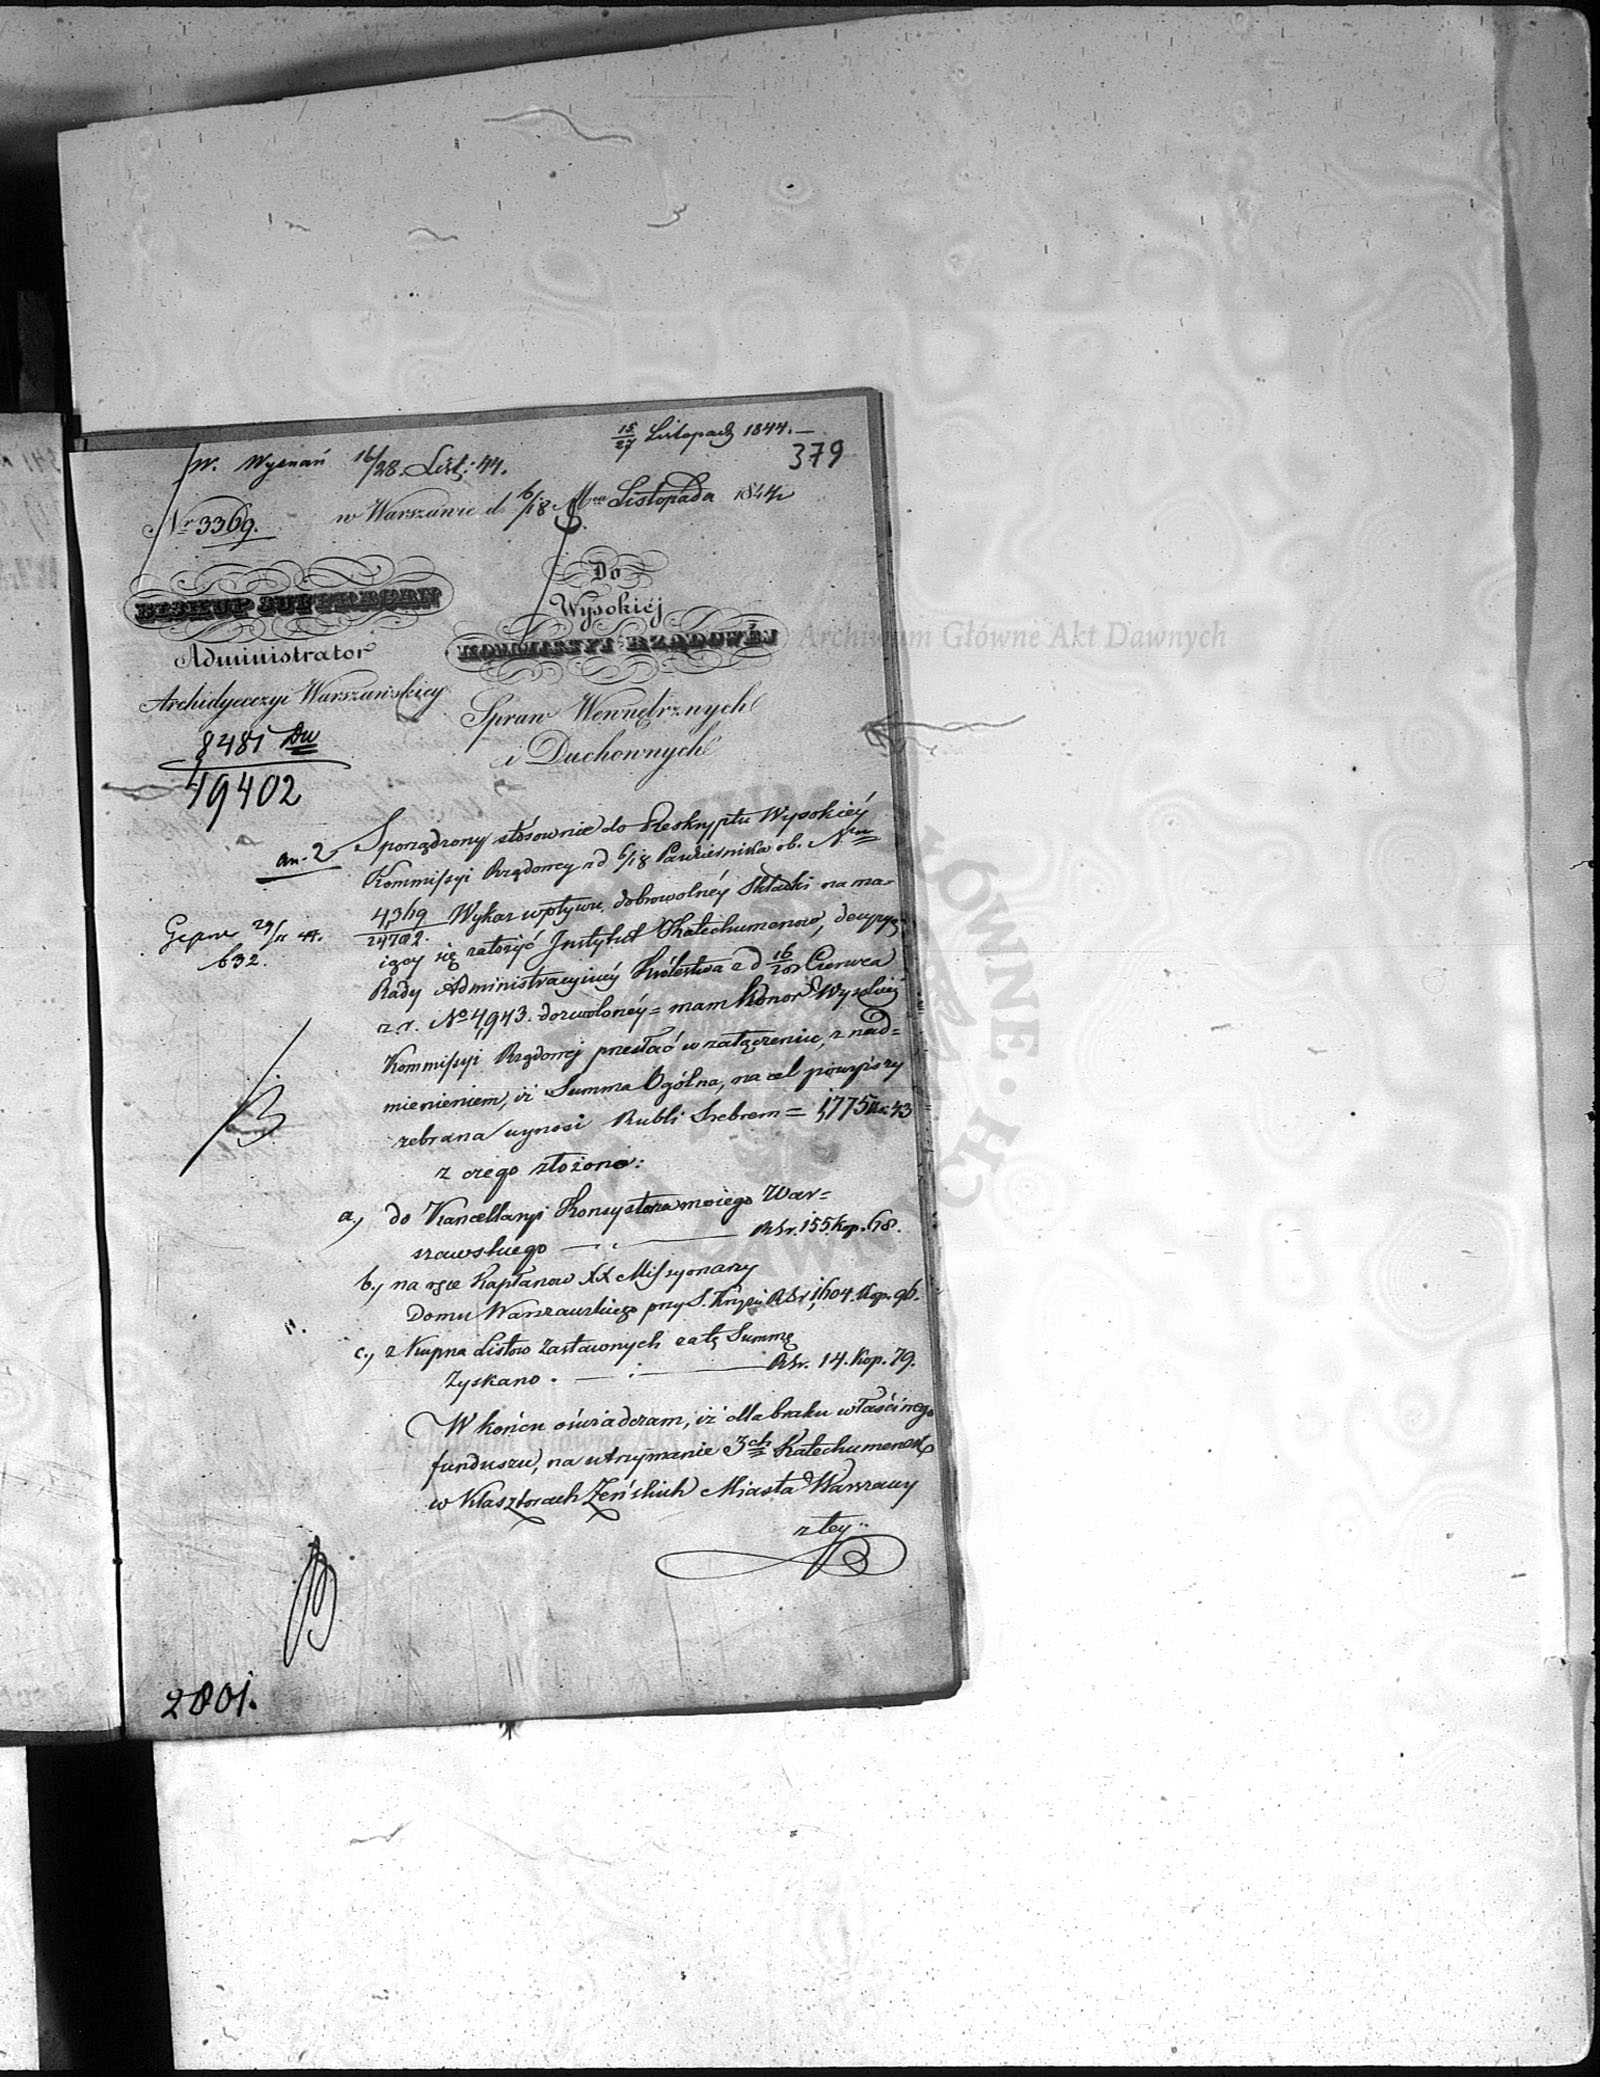 15/27 Listopada 1844.—
379
W. Wyznań 16/28 List: 44.
w Warszawie d. 6/18 Mca Listopada 1844 r
Nr 3369.
BISKUP SUFFRAGAN
Administrator
Archidyecezyi Warszawskiey
8481 Dw
49402
Do
Wysokiéj
KOMMISSYI RZĄDOWÉJ
Spraw Wewnętrznych
i Duchownych
an. 2
Sporządzony stósownie do Reskryptu Wysokiéy
Kommissyi Rządowey z d 6/18 Października r. b. Nru
4369/24702. Wykaz wpływu dobrowolnéy Składki na ma-
iący się założyć Instytut Katechumenów, decyzyą
Rady Administracyjnéy Królestwa z d 16/28 Czerwca
z. r. No 4,943. dozwolonéy = mam honor Wysokiéy
Kommissyi Rządowej przesłać w załączeniu, z nad=
mienieniem, iż Summa Ogólna, na cel powyższy
zebrana wynosi Rubli Srebrem = 1,775 k. 43
z czego złożono:
632.
a, do Kancellaryi Konsystorza mojego War=
szawskiego — Rsr. 155. kop. 68.
b, na ręce Kapłanów XX Missyonarzy
Domu Warszawskiego przy S. Krzyżu RSr 1,604. Kop. 96.
c, z Kupna Listów Zastawnych całą Summę
Zyskano. — RSr. 14. Kop. 79.
W końcu oświadczam, iż dla braku właściwego
funduszu, na utrzymanie 3ch Katechumenek
w Klasztorach Żeńskich Miasta Warszawy
z tey
2801.
Archiwum Główne Akt Dawnych